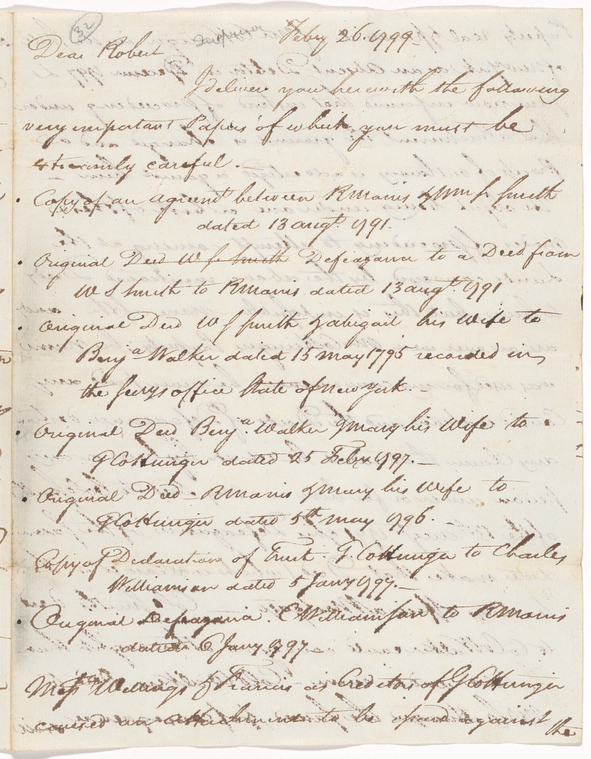 32
Feby 26. 1799
Dear Robert
I deliver you herewith the following
very important Papers of which you must be
extremely careful.
Copy of an Agreemt between RMorris & Wm S. Smith
dated 13 augt. 1791.
Original Deed W S Smith Defeazance to a Deed from
W S Smith to RMorris dated 13 augt. 1791
Original Deed W S Smith & abigail his Wife to
Benja Walker dated 15 may 1795 recorded in
the Secys office State of New york.
Original Deed Benja. Walker & Mary his Wife to
G Cottringer dated 25 Feby 1797.
Original Deed RMorris & Mary his Wife to
G Cottringer dated 5th may 1796.
Copy of Declaration of Trust G Cottringer to Charles
Williamson dated 5 Jany 1797
Original Defeazance C Williamson to RMorris
dated 6 Jany 1797.
Messrs Wellings & Francis as Creditors of G Cottringer
caused an attachment to be issued against the